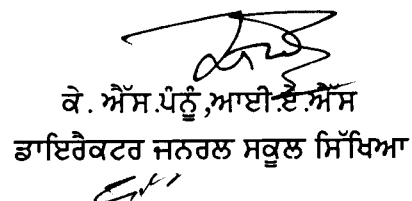 ਕੇ. ਐੱਸ.ਪੰਨੂੰ,ਆਈ.ਏ.ਐੱਸ
ਡਾਇਰੈਕਟਰ ਜਨਰਲ ਸਕੂਲ ਸਿੱਖਿਆ